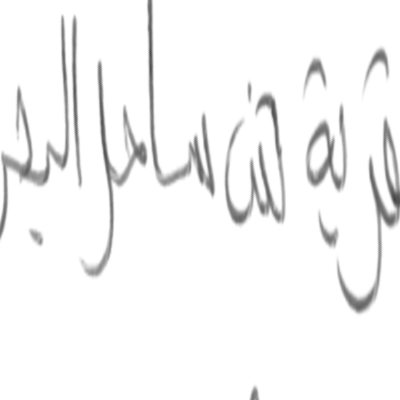 قرية من ساحل البحر